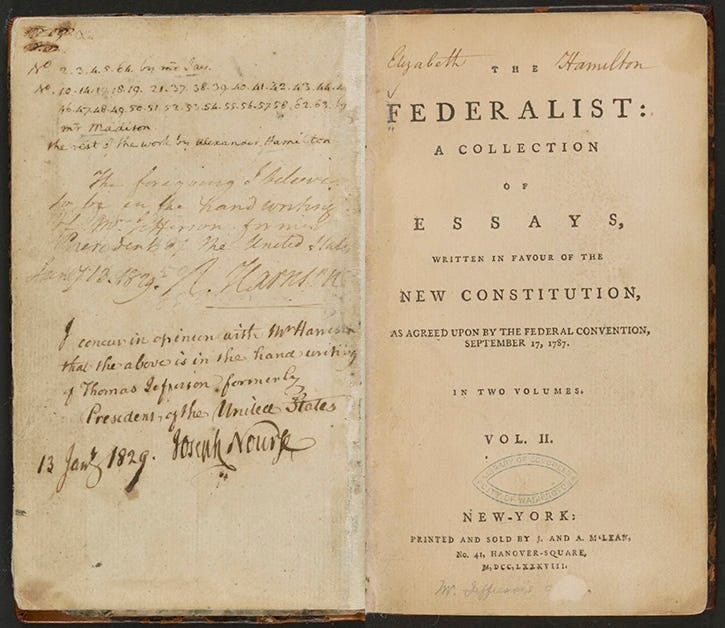 No. 2. 3. 4. 5. 64. by mr Jay.
No. 10. 14. 17. 18. 19. 21. 37. 38. 39. 40. 41. 42. 43. 44.
46. 47. 48. 49. 50. 51. 52. 53. 54. 55. 56. 57. 58. 62. 63. by
mr Madison.
the rest of the work by Alexander Hamilton
The foregoing I believe
to be in the hand writing
of Mr. Jefferson former
President of the United States
Jany. 13. 1829. R. Harrison
I concur in opinion with Mr Harrison
that the above is in the hand writing
of Thomas Jefferson, formerly
President, of the United States
13 Jany 1829. Joseph Nourse
Elizabeth Hamilton
THE
FEDERALIST:
A COLLECTION
OF
ESSAYS,
WRITTEN IN FAVOUR OF THE
NEW CONSTITUTION,
AS AGREED UPON BY THE FEDERAL CONVENTION,
SEPTEMBER 17, 1787.
IN TWO VOLUMES.
VOL. II.
LIBRARY OF CONGRESS
CITY OF WASHINGTON
NEW-YORK:
PRINTED AND SOLD BY J. AND A. McLEAN,
No. 41, HANOVER-SQUARE,
M,DCC,LXXXVIII.
Mr. Jefferson's